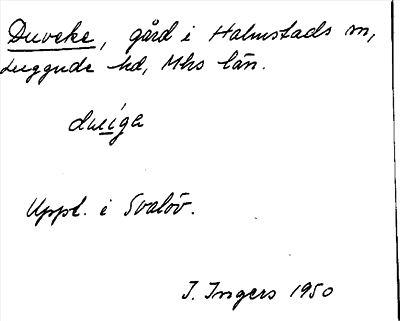 Duveke, gård i Halmstads sn,
Luggude hd, Mhs län.
duiga
Uppt. i Svalöv.
I. Ingers 1950